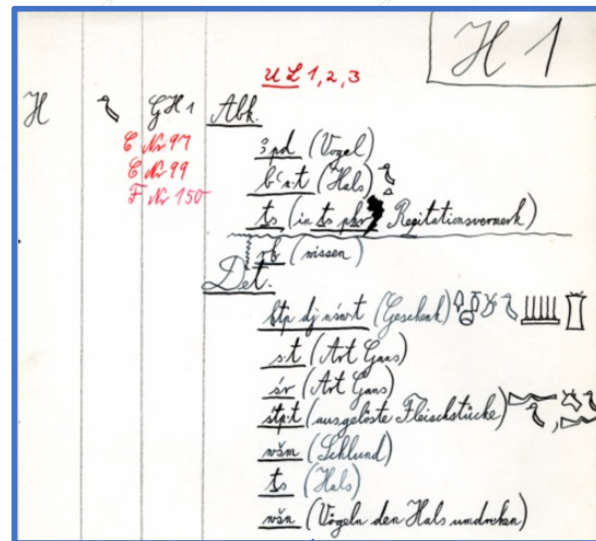 H 1
U L 1, 2, 3
H GH 1 Abk.
C Nr 97
ꜣpd (Vogel)
C Nr 99
bꜥn:t (Hals)
F Nr 150
ṯs (in ṯs pẖr Rezitationsvermerk)
rḫ (wissen)
Det.
ḥtp dj nswt (Geschenk)
s:t (Art Gans)
sr (Art Gans)
stp:t (ausgelöste Fleischstücke)
wšm (Schlund)
ṯs (Hals)
wšn (Vögeln den Hals umdrehen)